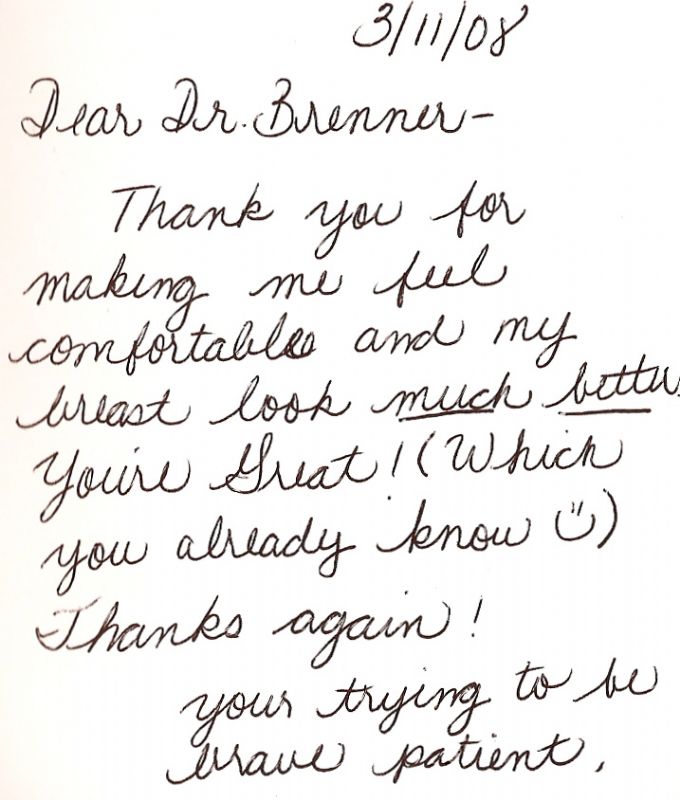 3/11/08
Dear Dr. Brenner-
Thank you for
making me feel
comfortable and my
breast look much better.
You're Great! (Which
you already know ツ)
Thanks again!
your trying to be
brave patient,